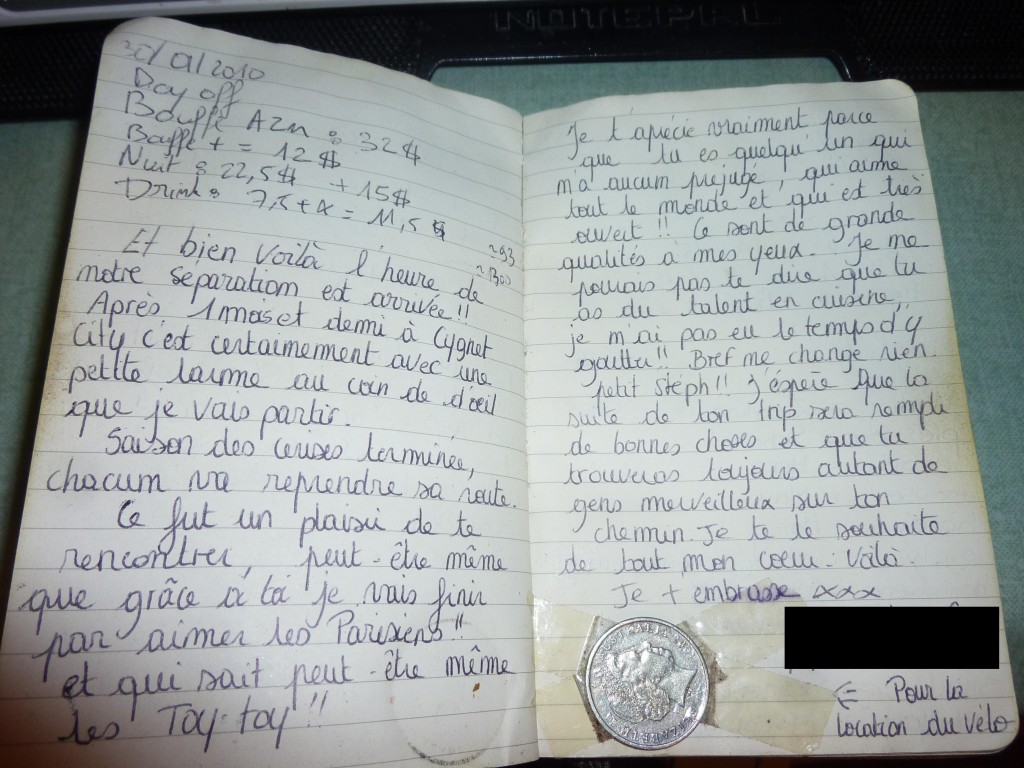 NOTEPAL
30/01/2010
Day off
Bouffe Azn : 32$
Bouffe + = 12$
Nuit : 22,5$ + 15$
Drink : 7,5+4 = 11,5$
~93
~1300
Et bien voilà l'heure de
notre separation est arrivée !!
Après 1 mois et demi à Cygnet
City c'est certainement avec une
petite larme au coin de d'oeil
que je vais partir.
Saison des cerises terminée,
chacun va reprendre sa route.
Ce fut un plaisir de te
rencontrer, peut-être même
que grâce à toi je vais finir
par aimer les Parisiens !!
et qui sait peut-être même
les Toy-toy !!
Je t'apécie vraiment parce
que tu es quelqu'un qui
m'a aucum prejugé, qui aime
tout le monde et qui est très
ouvert !! Ce sont de grande
qualités à mes yeux. Je me
pouvais pas te dire que tu
as du talent en cuisine,
je m'ai pas eu le temps d'y
gouttu !! Bref me change rien
petit Stéph !! J'éspère que la
suite de ton trip sera rempli
de bonnes choses et que tu
trouveras toujours autant de
gens merveilleux sur ton
chemin. Je te le souhaite
de tout mon coeur. Voilà.
Je t embrasse xxx
⇐ Pour la
location du vélo